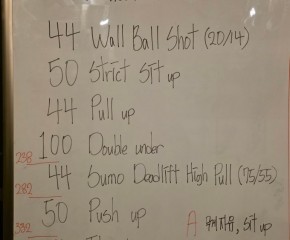 44 Wall Ball Shot (20/14)
50 Strict Sit up
44 Pull up
100 Double under
238
44 Sumo Deadlift High Pull (75/55)
282
50 Push up
332
A
, Sit up